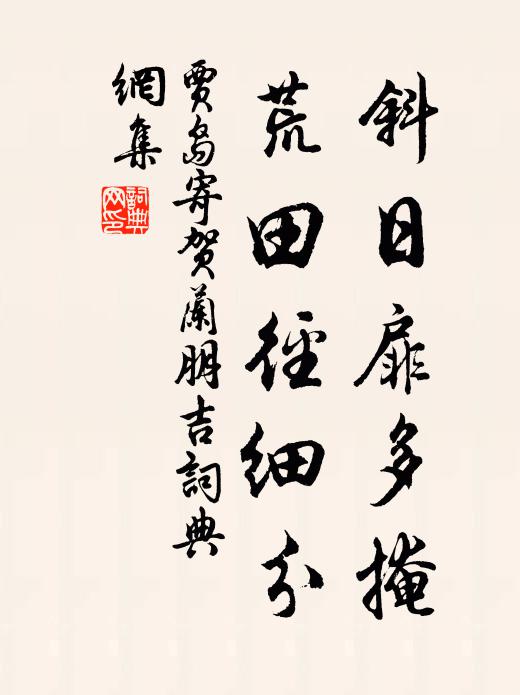 斜日扉多掩
荒田徑細分
賈島寄賀蘭朋吉詞典
網集
詞典
网印